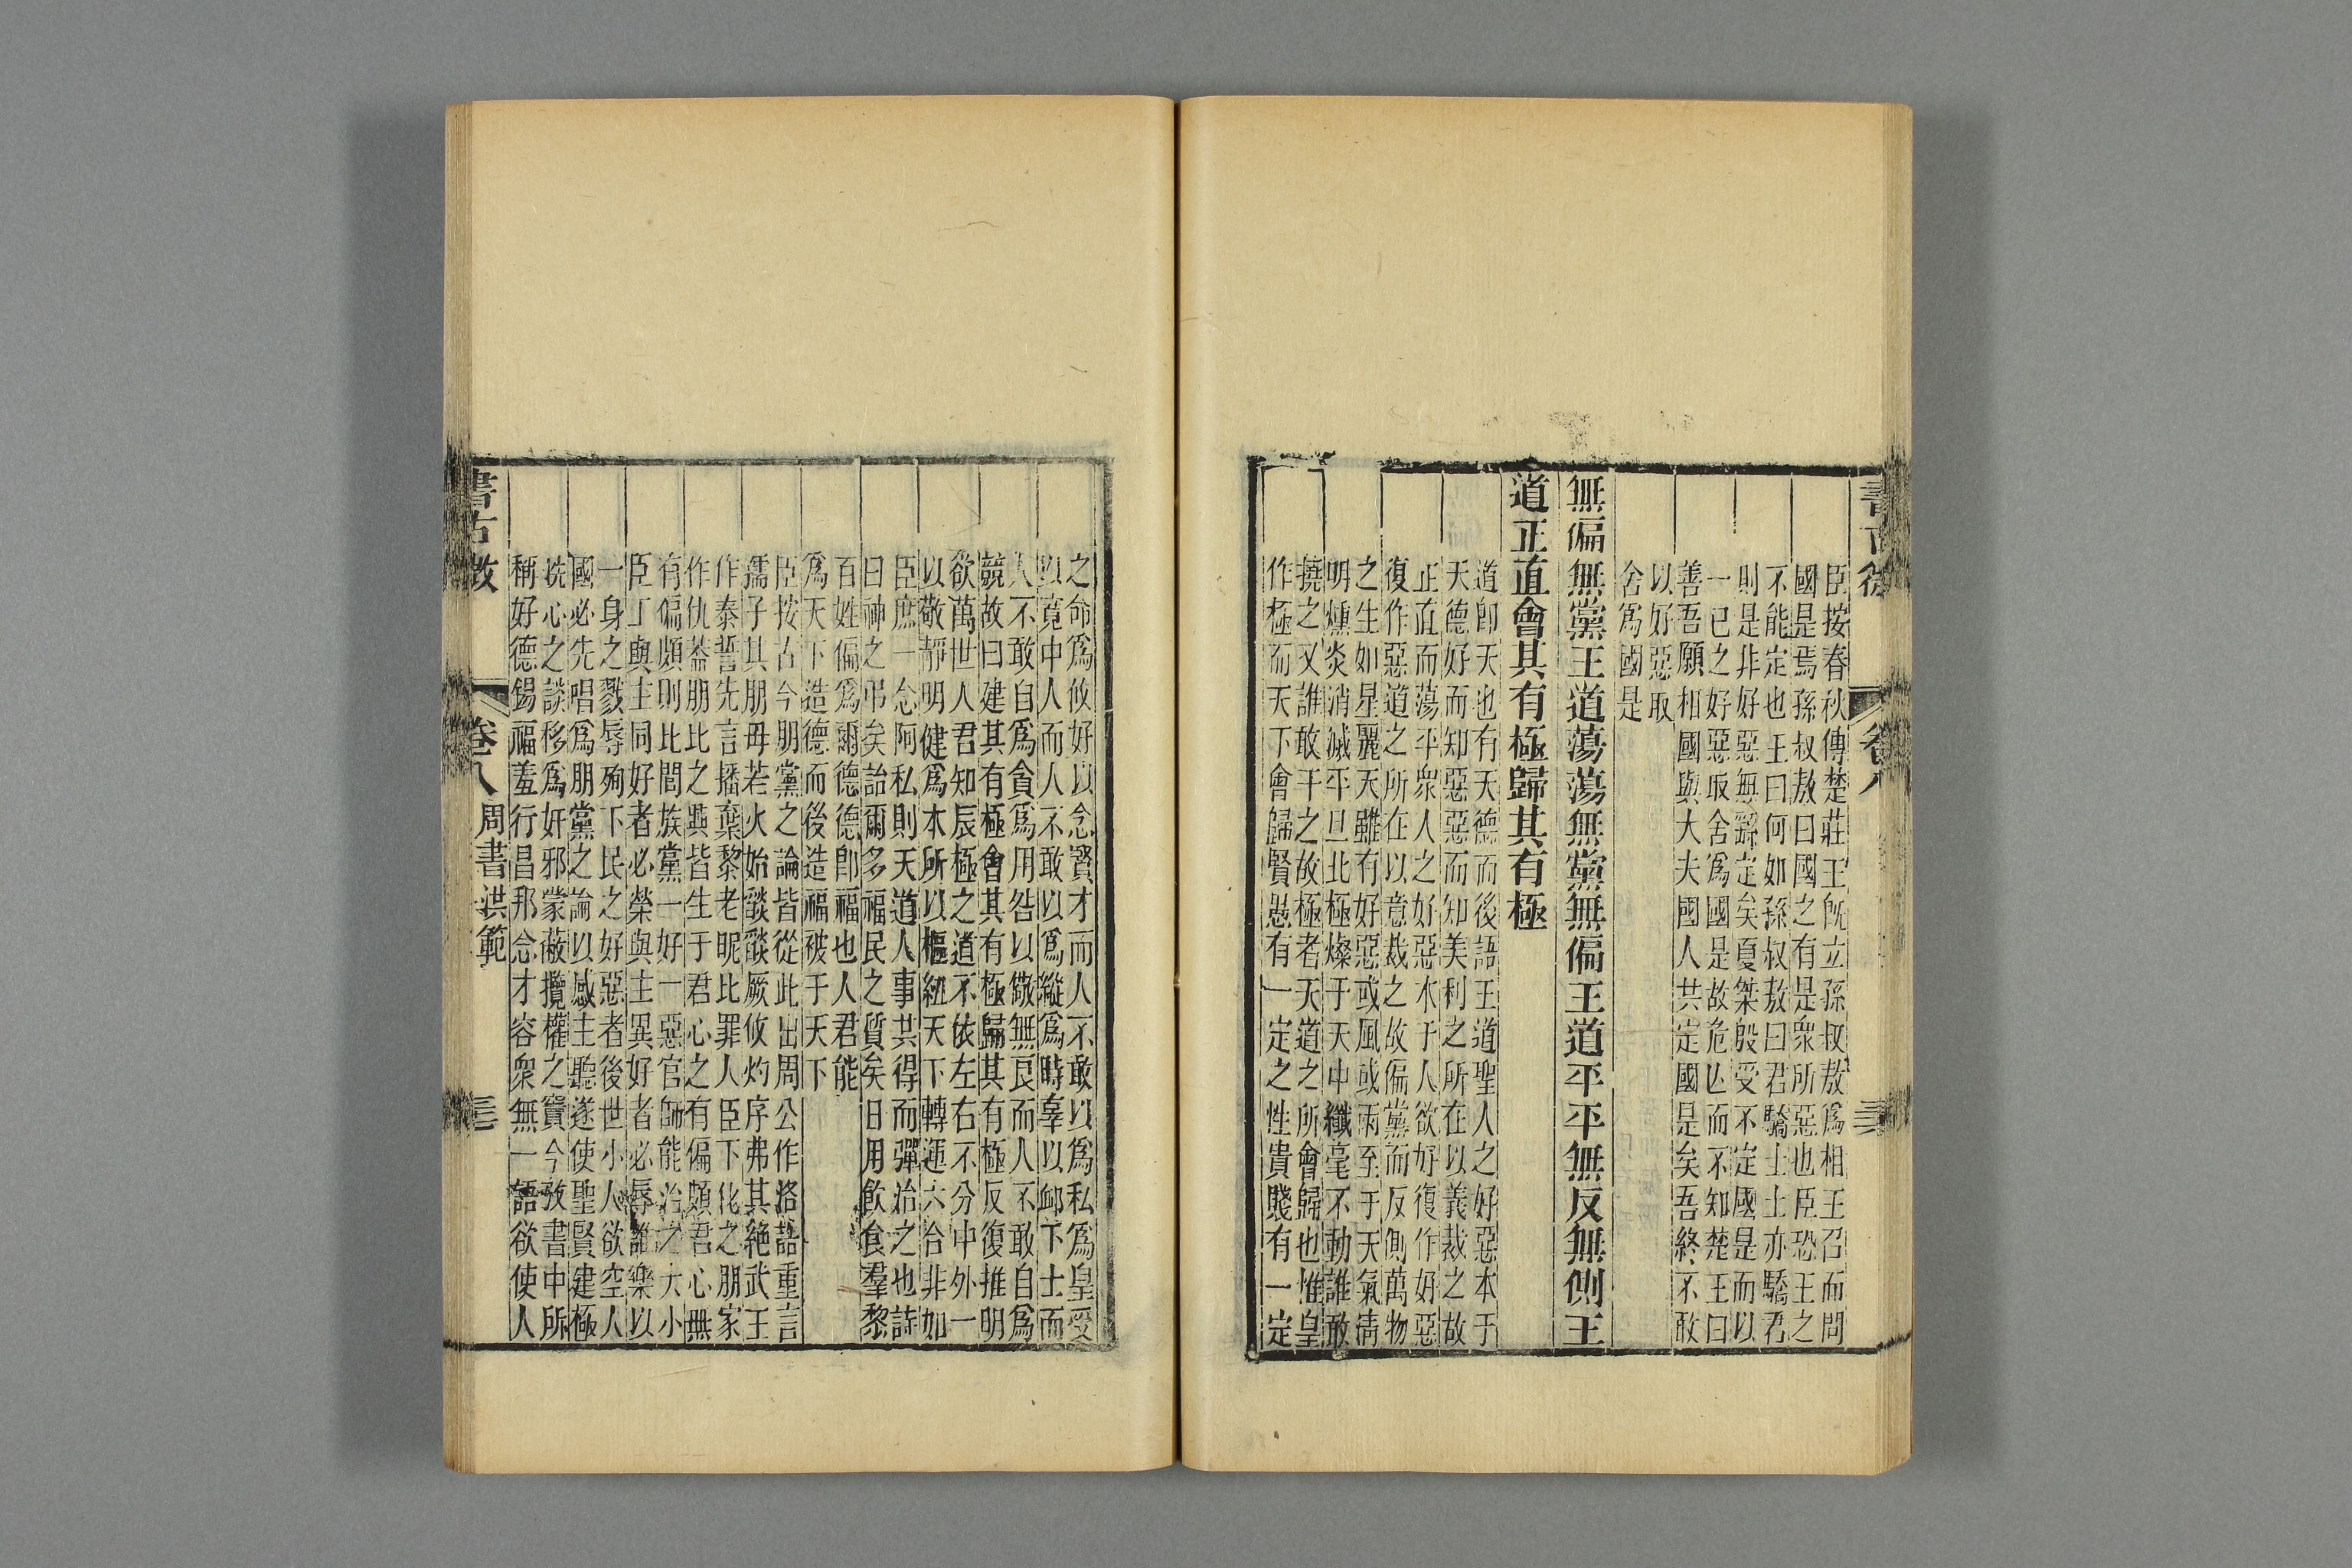 臣按春秋傳楚莊王既立孫叔敖爲相王召而問
國是焉孫叔敖曰國之有是衆所惡也臣恐王之
不能定也王曰何如孫叔敖曰君驕士士亦驕君
則是非好惡無歸定矣夏桀殷受不定國是而以
一己之好惡取舍爲國是故危亾而不知楚王曰
善吾願相國與大夫國人共定國是矣吾終不敢
以好惡取
舍爲國是
無偏無黨王道蕩蕩無黨無偏王道平平無反無側王
道正直會其有極歸其有極
道卽天也有天德而後語王道聖人之好惡本于
天德好而知惡惡而知美利之所在以義裁之故
正直而蕩平衆人之好惡本于人欲好復作好惡
復作惡道之所在以意裁之故偏黨而反側萬物
之生如星麗天雖有好惡或風或雨至于天氣淸
明燻炎消滅平旦北極燦于天中纖毫不動誰敢
撓之又誰敢干之故極者天道之所會歸也惟皇
作極而天下會歸賢愚有一定之性貴賤有一定
之命爲攸好以念賢才而人不敢以爲私爲皇受
以竟中人而人不敢以爲縱爲時辜以䘏下士而
人不敢自爲貪爲用咎以儆無良而人不敢自爲
競故曰建其有極會其有極歸其有極反復推明
欲萬世人君知辰極之道不依左右不分中外一
以敬靜明健爲本所以樞紐天下轉運六合非如
臣庶一念阿私則天道人事共得而彈治之也詩
曰神之弔矣詒爾多福民之質矣日用飮食羣黎
百姓偏爲爾德德卽福也人君能
爲天下造德而後造福被于天下
臣按古今朋黨之論皆從此出周公作洛誥重言
孺子其朋毋若火始燄燄厥攸灼序弗其絕武王
作泰誓先言播棄黎老昵比罪人臣下化之朋家
作仇葢朋比之興皆生于君心之有偏頗君心無
有偏頗則比閭族黨一好一惡官師能治之大小
臣工與主同好者必榮與主異好者必辱誰樂以
一身之戮辱殉下民之好惡者後世小人欲空人
國必先唱爲朋黨之論以惑主聽遂使聖賢建極
洗心之談移爲奸邪蒙蔽攬權之竇今攷書中所
稱好德錫福羞行昌邦念才容衆無一語欲使人
卷八 周書 洪範